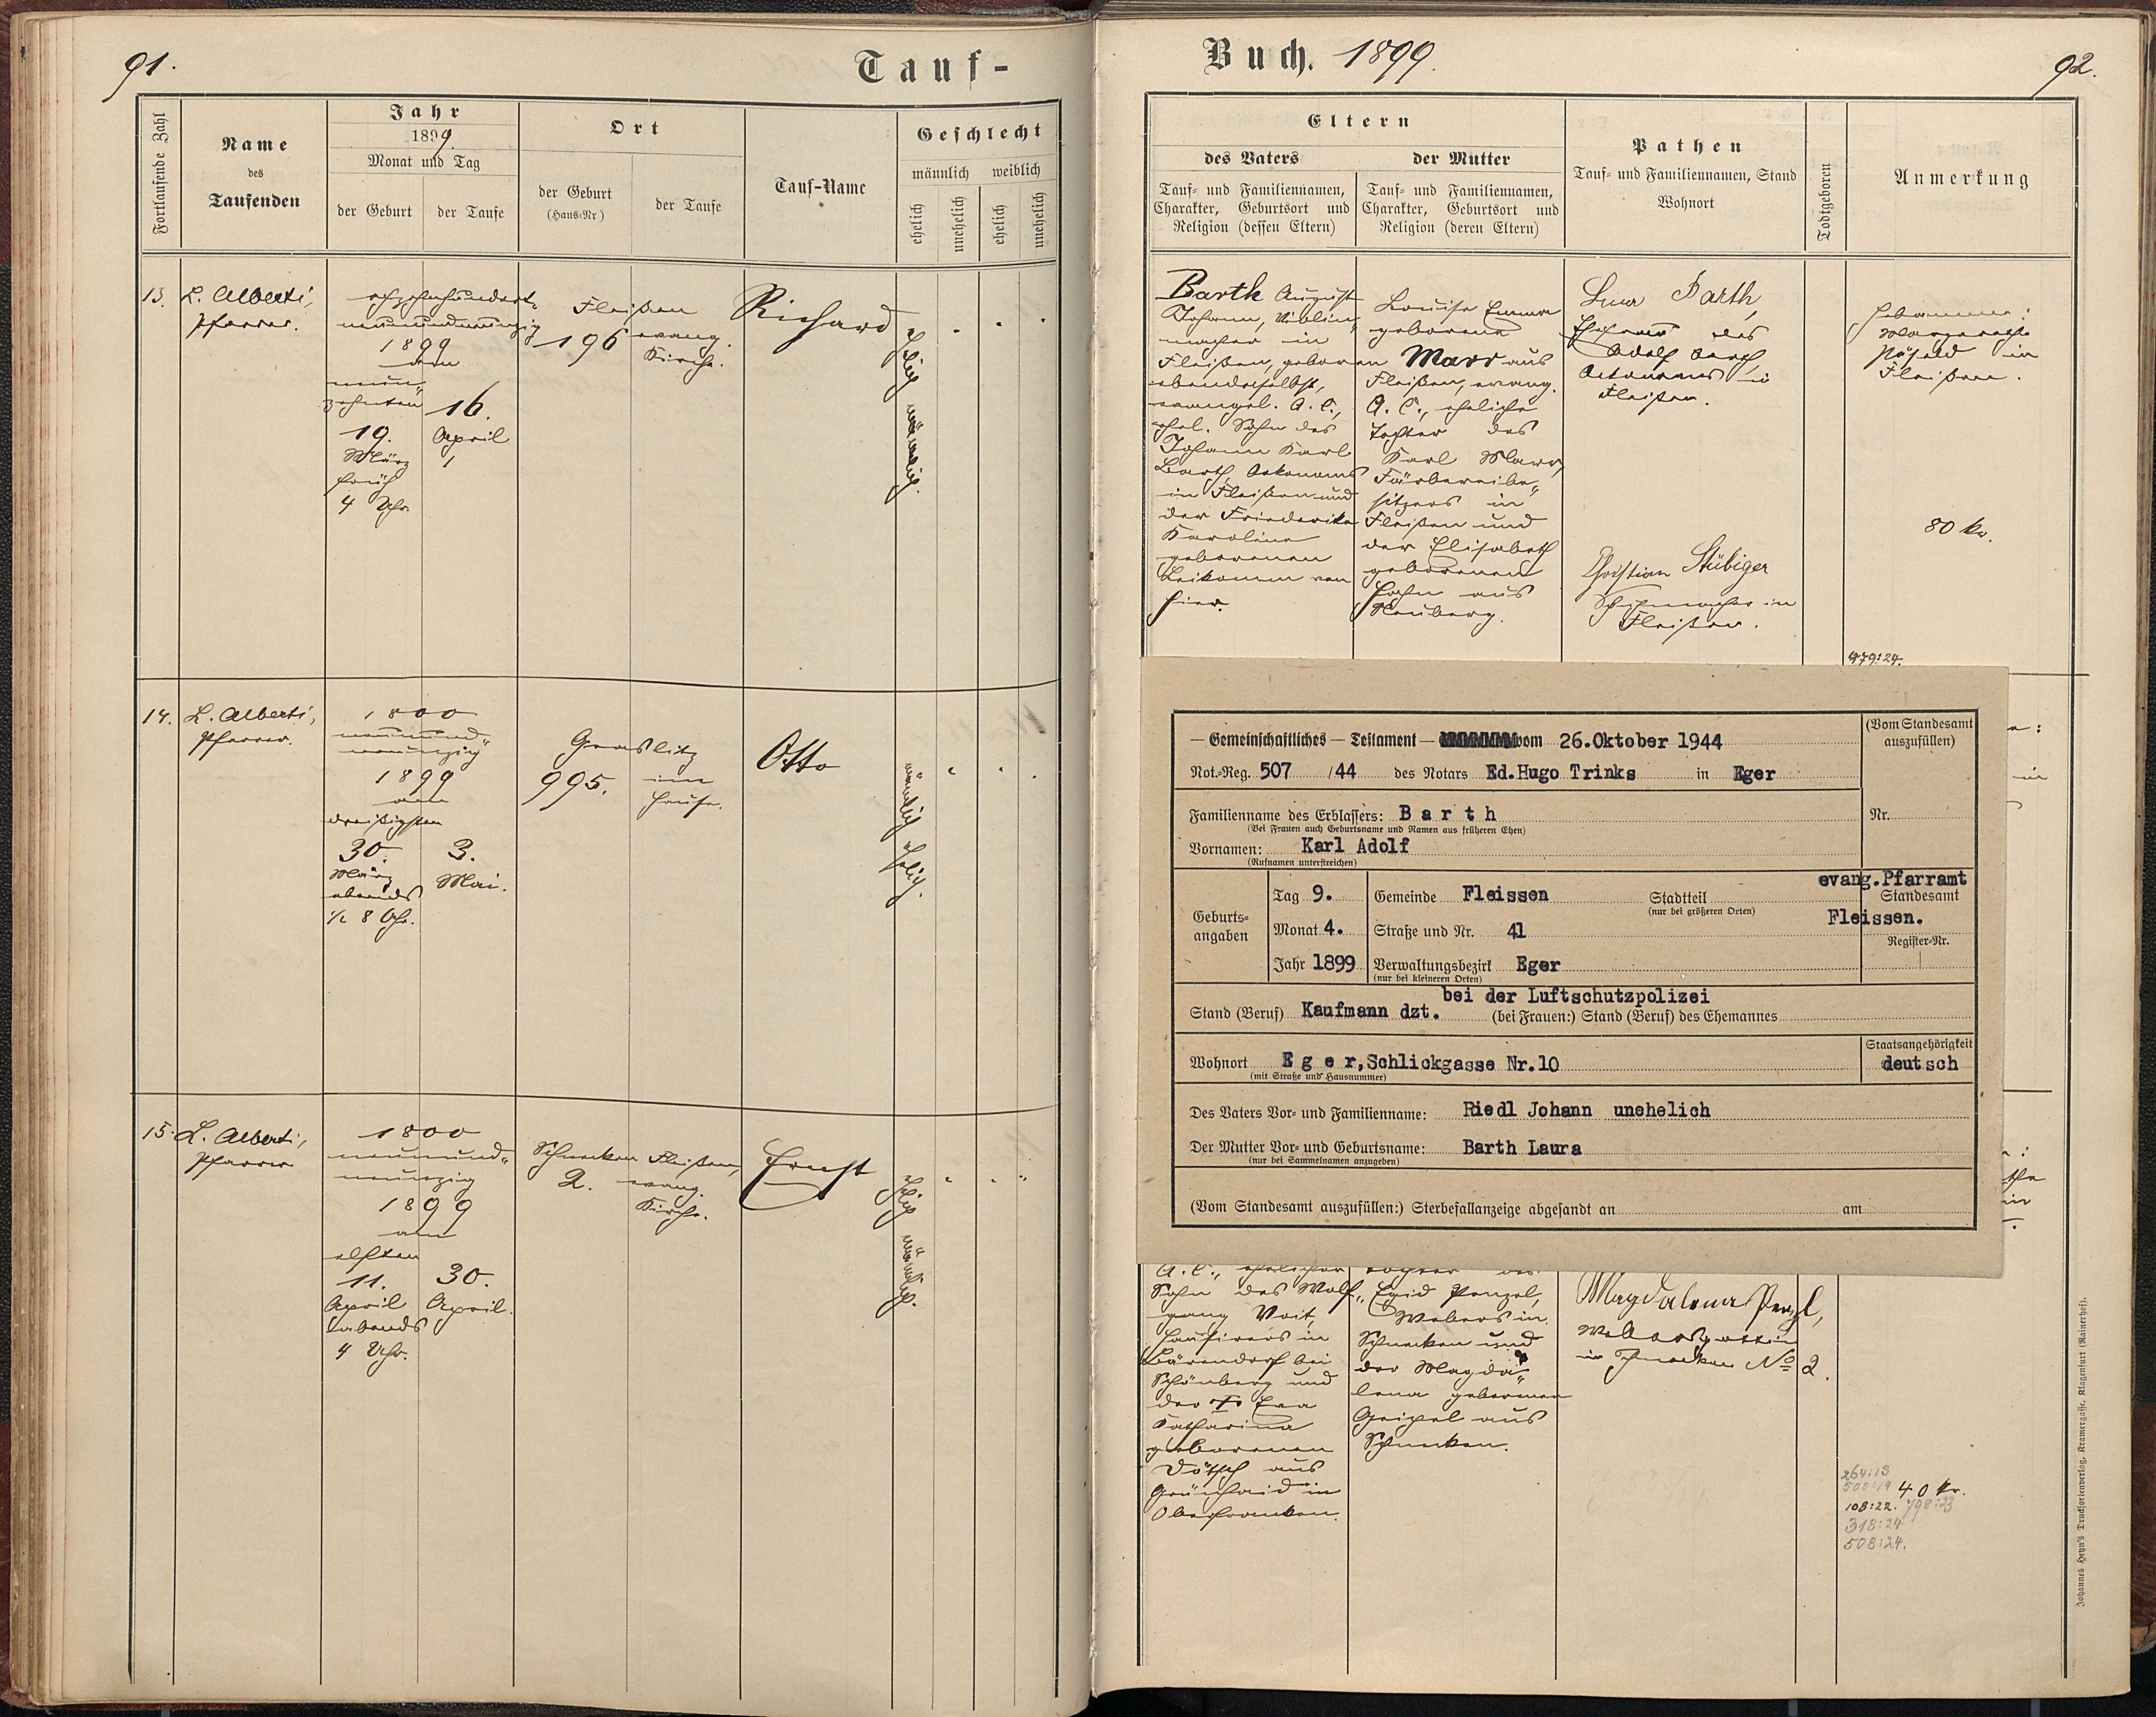 91.
Tauf-
Fortlaufende Zahl
Name
des
Taufenden
Jahr
1899.
Monat und Tag
der Geburt
der Taufe
Ort
der Geburt
(Haus-Nr)
der Taufe
Tauf-Name
Geschlecht
männlich weiblich
ehelich
unehelich
ehelich
unehelich
13.
L. Alberti,
Pfarrer.
achzehnhundert-
neunundneunzig
1899
den
neun-
zehnten
19.
März
früh
4 Uhr.
16.
April
Fleißen
196
evang.
Kirche.
Richard
ehelich
männlich.
14.
L. Alberti,
Pfarrer.
1800
neunund-
neunzig
1899
am
dreißigsten
30.
März
abends
½ 8 Uhr.
3.
Mai.
Graslitz
995.
im
Hause.
Otto
männlich
ehelich.
15.
L. Alberti,
Pfarrer
1800
neunund-
neunzig
1899
am
elften
11.
April
abends
4 Uhr.
30.
April.
Schnecken
2.
Fleißen,
evang.
Kirche.
Ernst
ehelich
männlich.
Buch. 1899.
92.
Eltern
des Vaters
Tauf- und Familiennamen,
Charakter, Geburtsort und
Religion (dessen Eltern)
der Mutter
Tauf- und Familiennamen,
Charakter, Geburtsort und
Religion (deren Eltern)
Pathen
Tauf- und Familiennamen, Stand
Wohnort
Todtgeboren
Anmerkung
Barth August
Johann,
macher in
Fleißen, geboren
ebendaselbst,
evangel. A. C.,
ehel. Sohn des
Johann Karl
Barth, Oekonoms
in Fleißen und
der Friederike
Karoline
geborenen
von
hier.
Louise Emma
geborene
Marr aus
Fleißen, evang.
A. C., eheliche
Tochter des
Karl Marr,
Färbereibe-
sitzers in
Fleißen und
der Elisabeth
geborenen
Hahn aus
Neuberg.
Barth,
Ehefrau des
Adolf Barth
Oekonoms in
Fleißen.
Christian Stübiger
Schuhmacher in
Fleißen.
Hebamme:
Margarethe
in
Fleißen.
80 kr.
479:24.
Gemeinschaftliches — Testament — vom 26.Oktober 1944
Not.-Reg. 507 /44 des Notars Ed.Hugo Trinks in Eger
(Vom Standesamt
auszufüllen)
Familienname des Erblassers: Barth
(Bei Frauen auch Geburtsname und Namen aus früheren Ehen)
Nr.
Vornamen: Karl Adolf
(Rufnamen unterstreichen)
Geburts-
angaben
Tag 9.
Monat 4.
Jahr 1899
Gemeinde Fleissen
Stadtteil
(nur bei größeren Orten)
Straße und Nr. 41
Verwaltungsbezirk Eger
(nur bei kleineren Orten)
evang.Pfarramt
Standesamt
Fleissen.
Register-Nr.
bei der Luftschutzpolizei
Stand (Beruf) Kaufmann dzt. (bei Frauen:) Stand (Beruf) des Ehemannes
Wohnort Eger,Schlickgasse Nr.10
(mit Straße und Hausnummer)
Staatsangehörigkeit
deutsch
Des Vaters Vor- und Familienname: Riedl Johann unehelich
Der Mutter Vor- und Geburtsname: Barth Laura
(nur bei Sammelnamen anzugeben)
(Vom Standesamt auszufüllen:) Sterbefallanzeige abgesandt an am
A. C., ehelicher
Sohn des Wolf-
gang Voit,
Hausirers in
Bärendorf bei
Schönberg und
der † Eva
Katharina
geborenen
aus
Grünhaid in
Oberfranken.
Tochter des
Egid Penzel,
Webers in
Schnecken und
der Magda-
lena geborenen
Geipel aus
Schnecken.
Magdalena Penzl,
Webersgattin
in Schnecken No 2.
264:13
508:19
40 kr.
108:22. 798:23
318:24
508:24.
Johannes Heyn's Drucksortenverlag, Kramergasse, Klagenfurt (Rainerhof).